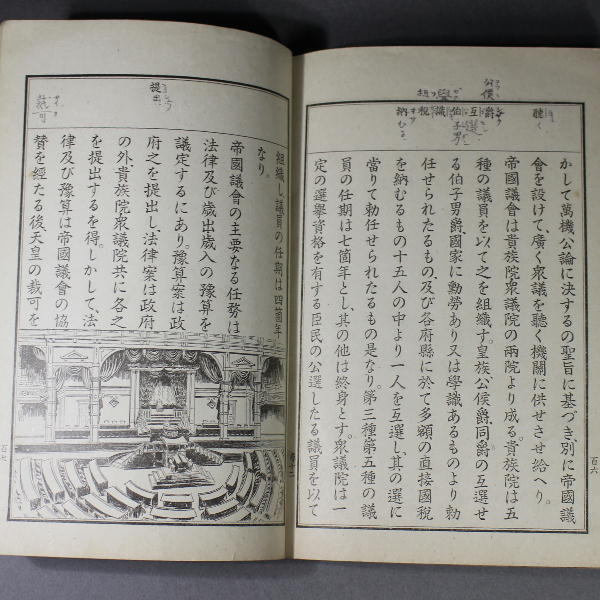 かして萬機公論に決するの聖旨に基づき、別に帝國議
會を設けて、廣く衆議を聽く機關に供せさせ給へり。
帝國議會は貴族院衆議院の兩院より成る。貴族院は五
種の議員を以て之を組織す。皇族、公侯爵、同爵の互選せ
る伯子男爵、國家に勳勞あり又は學識あるものより勅
任せられたるもの、及び各府縣に於て多額の直接國税
を納むるもの十五人の中より一人を互選し、其の選に
當りて勅任せられたるもの是なり。第三種・第五種の議
員の任期は七箇年とし、其の他は終身とす。衆議院は一
定の選擧資格を有する臣民の公選したる議員を以て
聽く
爵
互選
伯子男
識
税
納むる
公侯
擧
百六
組織し、議員の任期は四箇年
なり。
帝國議會の主要なる任務は
法律及び歳出歳入の豫算を
議定するにあり。豫算案は政
府之を提出し、法律案は政府
の外、貴族院衆議院共に各之
を提出するを得。しかして、法
律及び豫算は帝國議會の協
贊を經たる後、天皇の裁可を
提出
裁可
百七